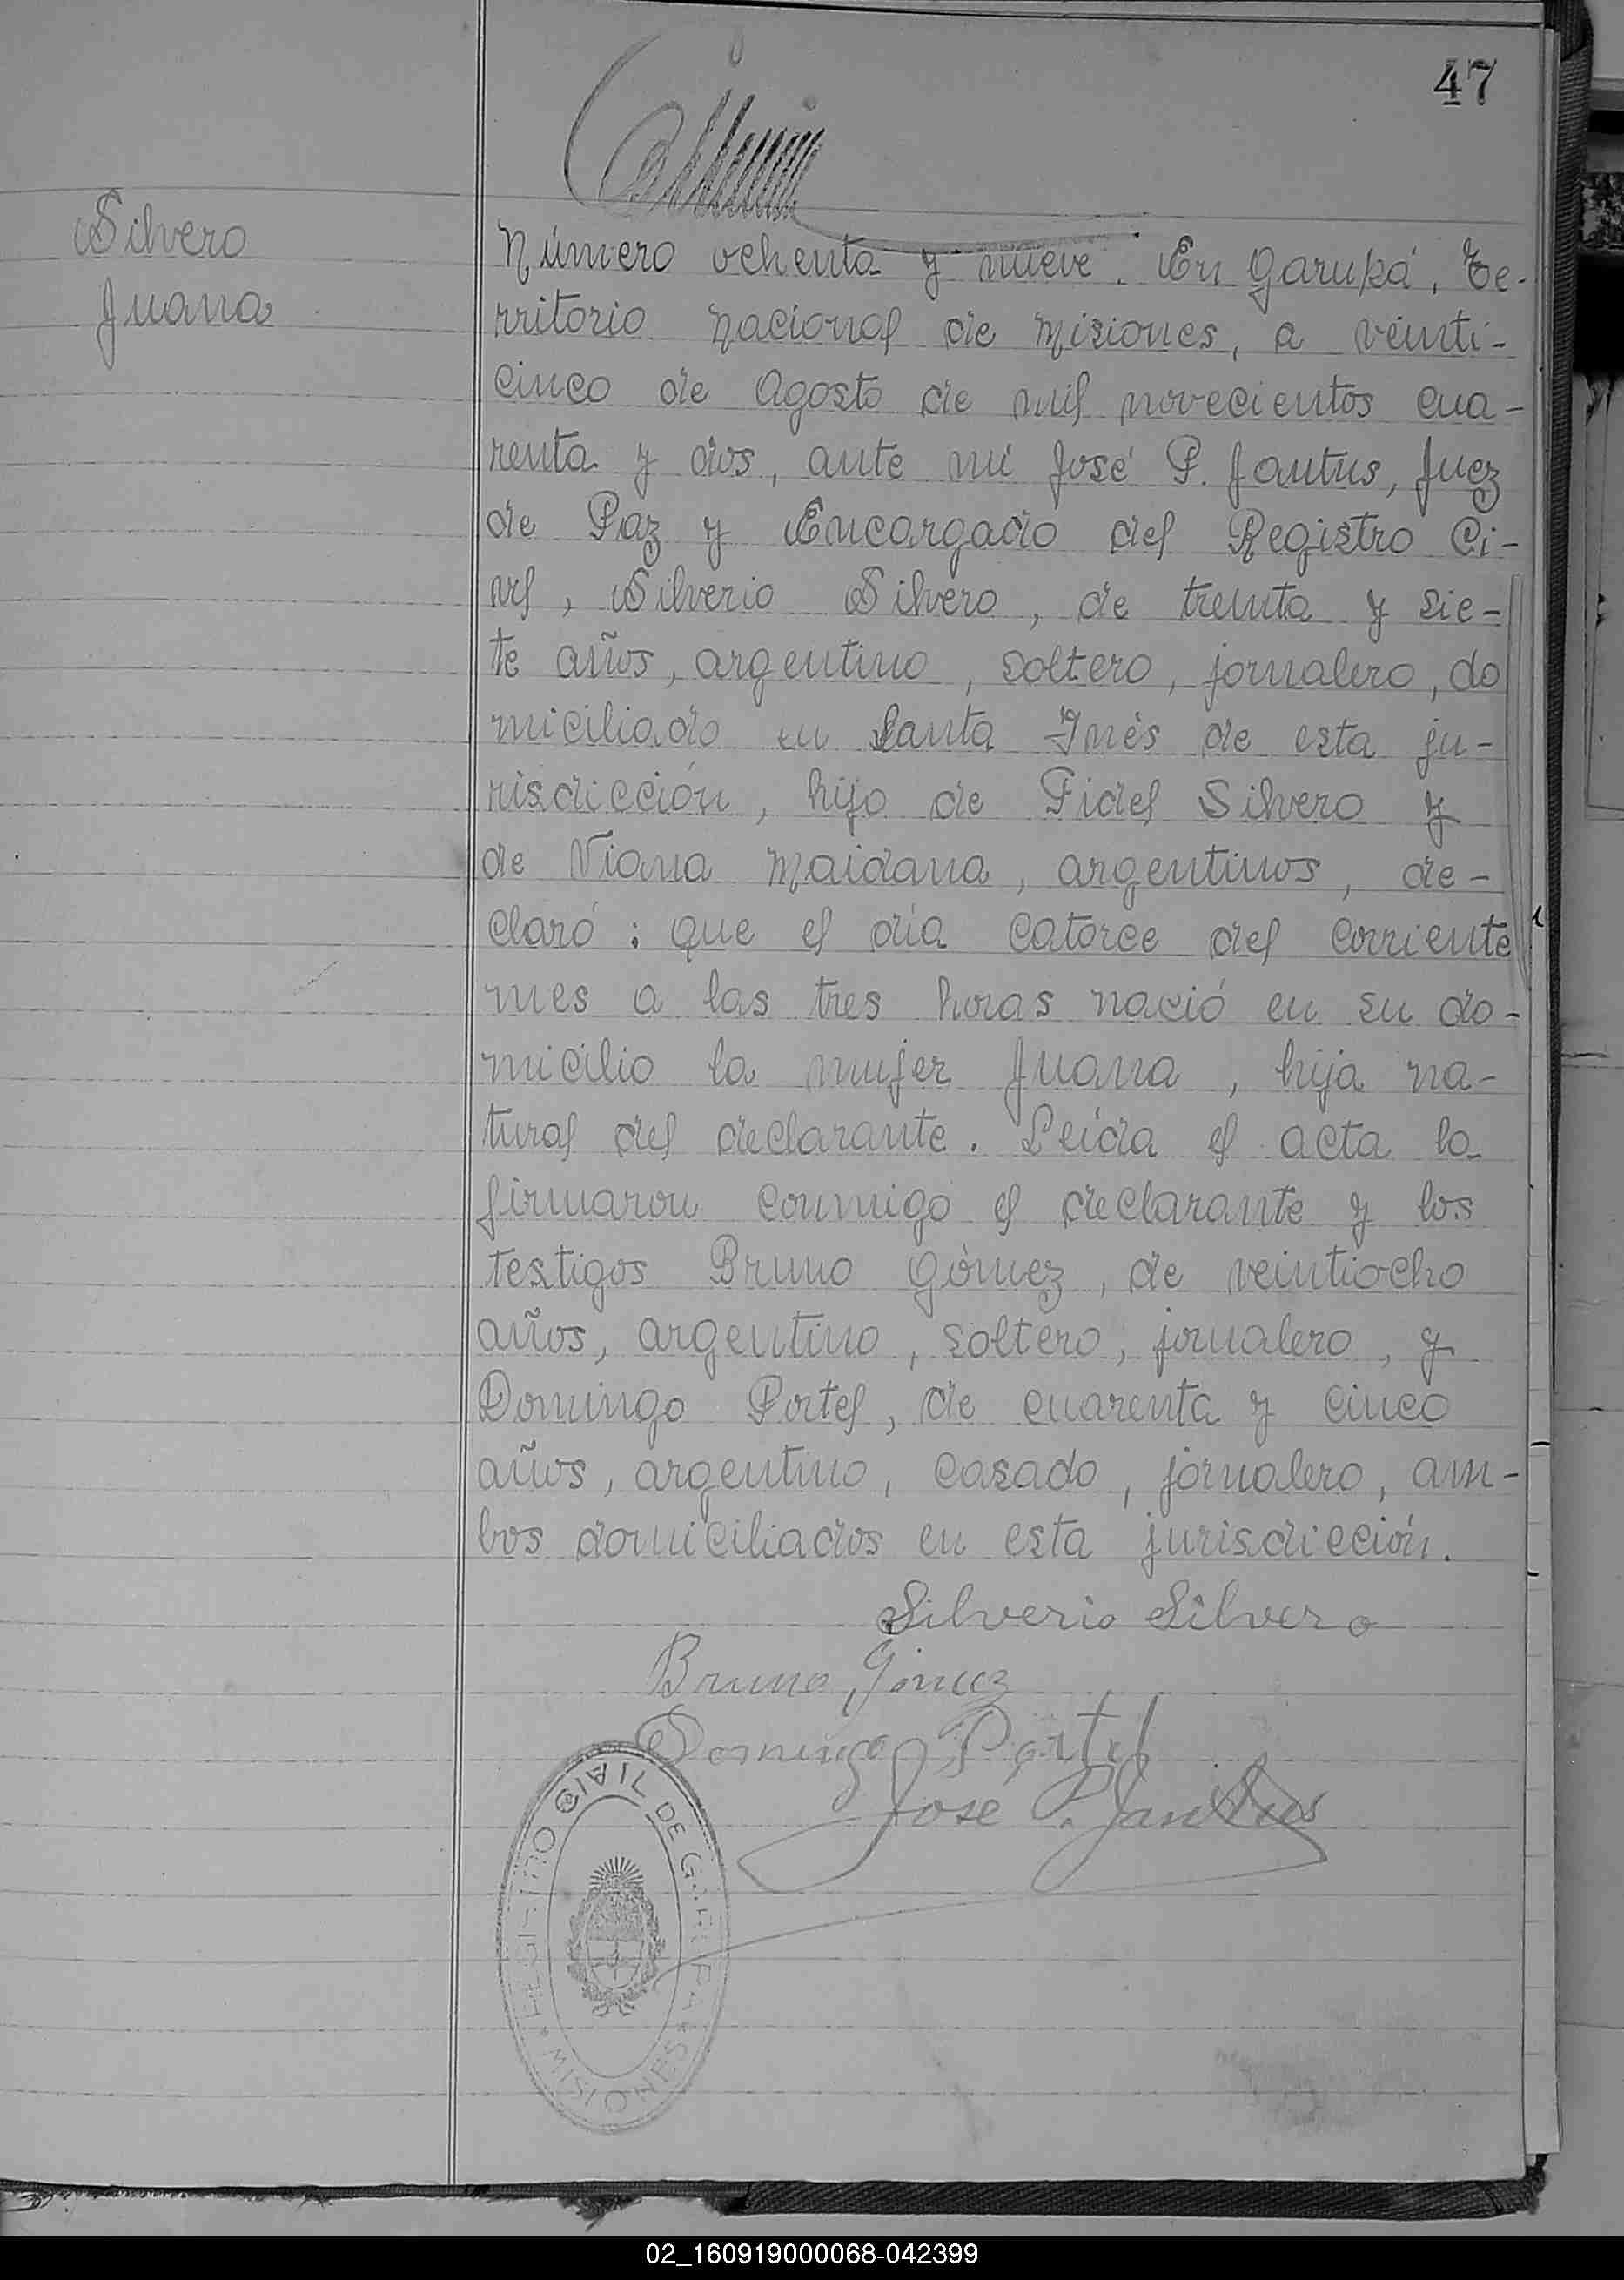 47
Silvero
Juana
Número ochenta y nueve. En Garupá, Te-
rritorio Nacional de Misiones, a veinti-
cinco de Agosto de mil novecientos cua-
renta y dos, ante mí José P. Jantus, Juez
de Paz y Encargado del Registro Ci-
vil, Silverio Silvero, de treinta y sie-
te años, argentino, soltero, jornalero, do
miciliado en Santa Inés de esta ju-
risdicción, hijo de Fidel Silvero y
de Viana Maidana, argentinos, de-
claró: que el día catorce del corriente
mes a las tres horas nació en su do-
micilio la mujer Juana, hija na-
tural del declarante. Leída el acta la
firmaron conmigo el declarante y los
testigos Bruno Gómez, de veintiocho
años, argentino, soltero, jornalero, y
Domingo Portel, de cuarenta y cinco
años, argentino, casado, jornalero, am-
bos domiciliados en esta jurisdicción.
Silverio Silvero
Bruno Gómez
Domingo Portel
José P. Jantus
REGISTRO CIVIL DE GARUPA
* MISIONES *
02_160919000068-042399